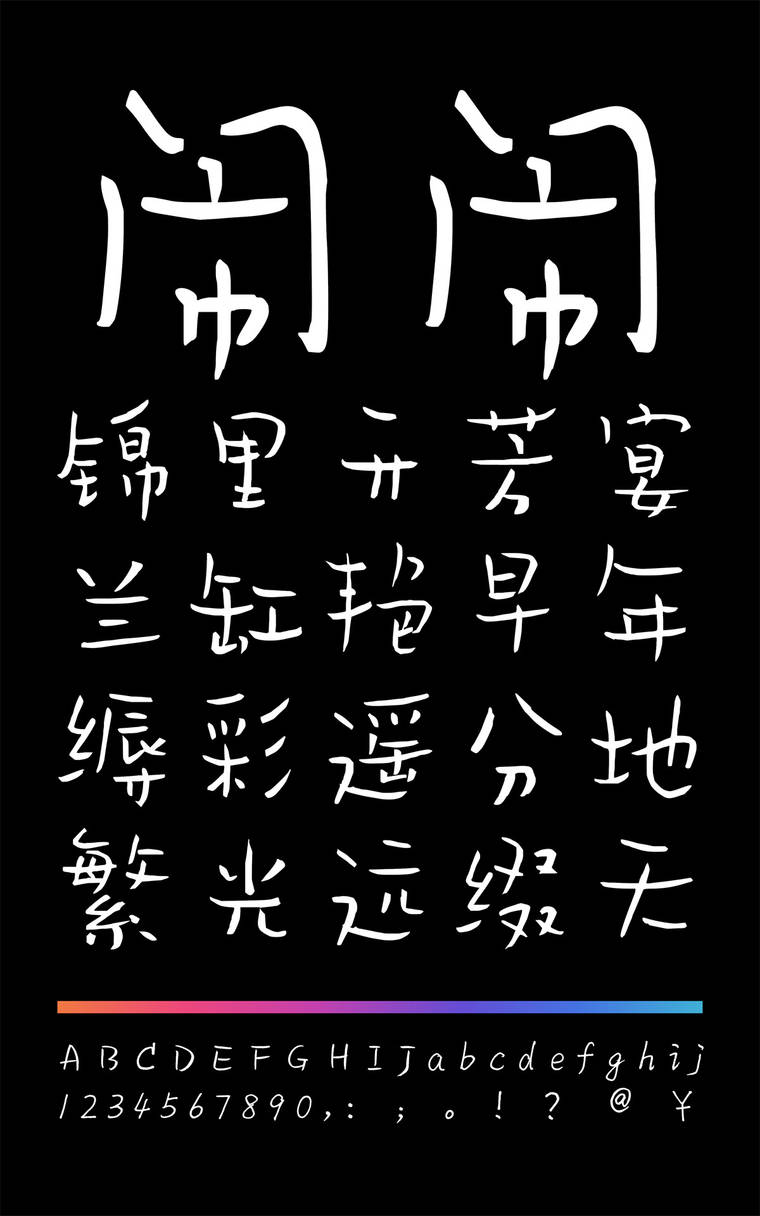 闹闹
锦里开芳宴
兰缸艳早年
缛彩遥分地
繁光远缀天
ABCDEFGHIJabcdefghij
1234567890,:;。!?@¥